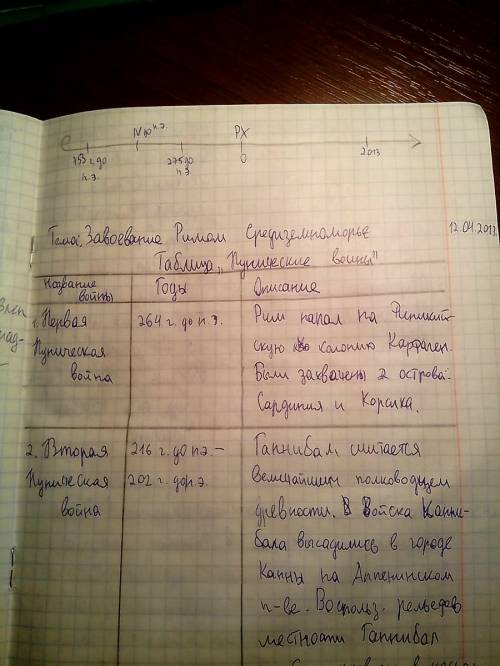 IV до н.э. РХ
753 г. до 275 до 0 2013
н.э. н.э.
12.04.2013.
Тема: Завоевание Римом Средиземноморье
Таблица „Пунические войны"
Название Годы Описание
войны
1. Первая 264 г. до н.э. Рим напал на Финикий-
Пуническая скую колонию Карфаген.
война Были захвачены 2 острова:
Сардиния и Корсика.
2. Вторая 216 г. до н.э. – Ганнибал считается
Пуническая 202 г. до н.э. величайшим полководцем
война древности. Войска Ганни-
бала высадились в городе
Канны на Аппенинском
п-ве. Воспольз. рельефом
местности Ганнибал